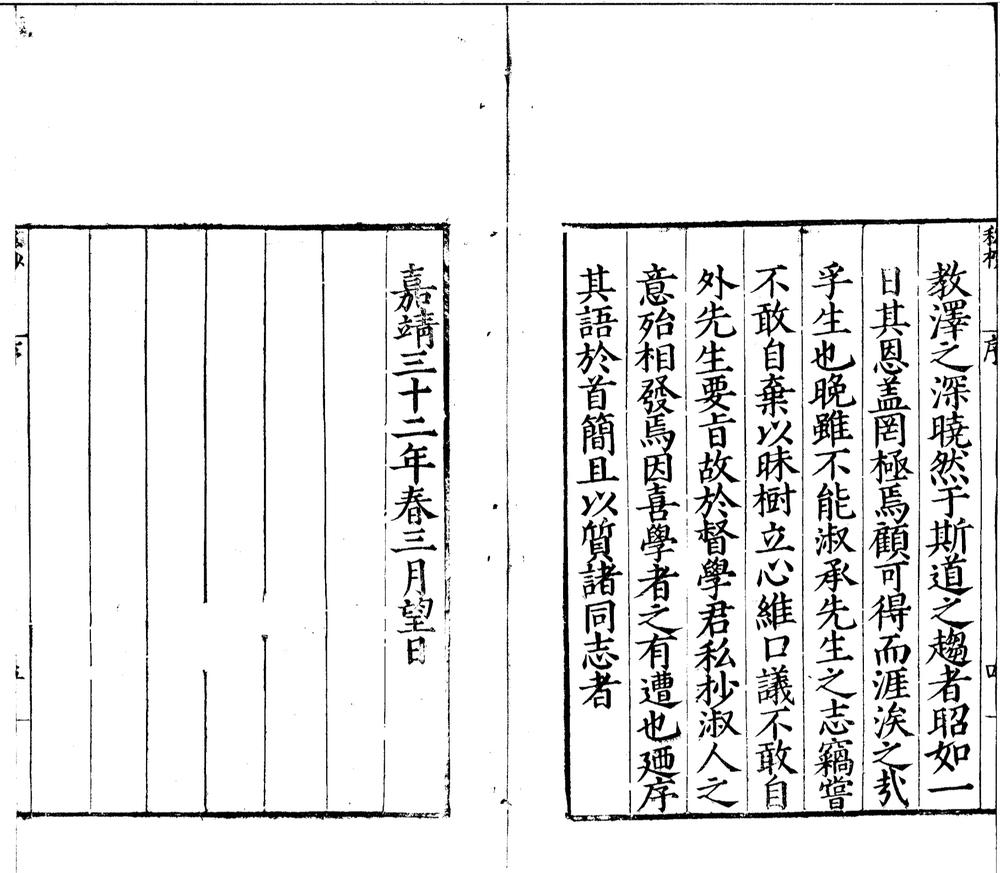 教澤之深曉然于斯道之趨者昭如一
日其恩盖罔極焉顧可得而涯涘之㢤
孚生也晚雖不能淑承先生之志竊嘗
不敢自棄以昧樹立心維口議不敢自
外先生要旨故於督學君私抄淑人之
意殆相發焉因喜學者之有遭也廼序
其語於首簡且以質諸同志者
嘉靖三十二年春三月望日
序